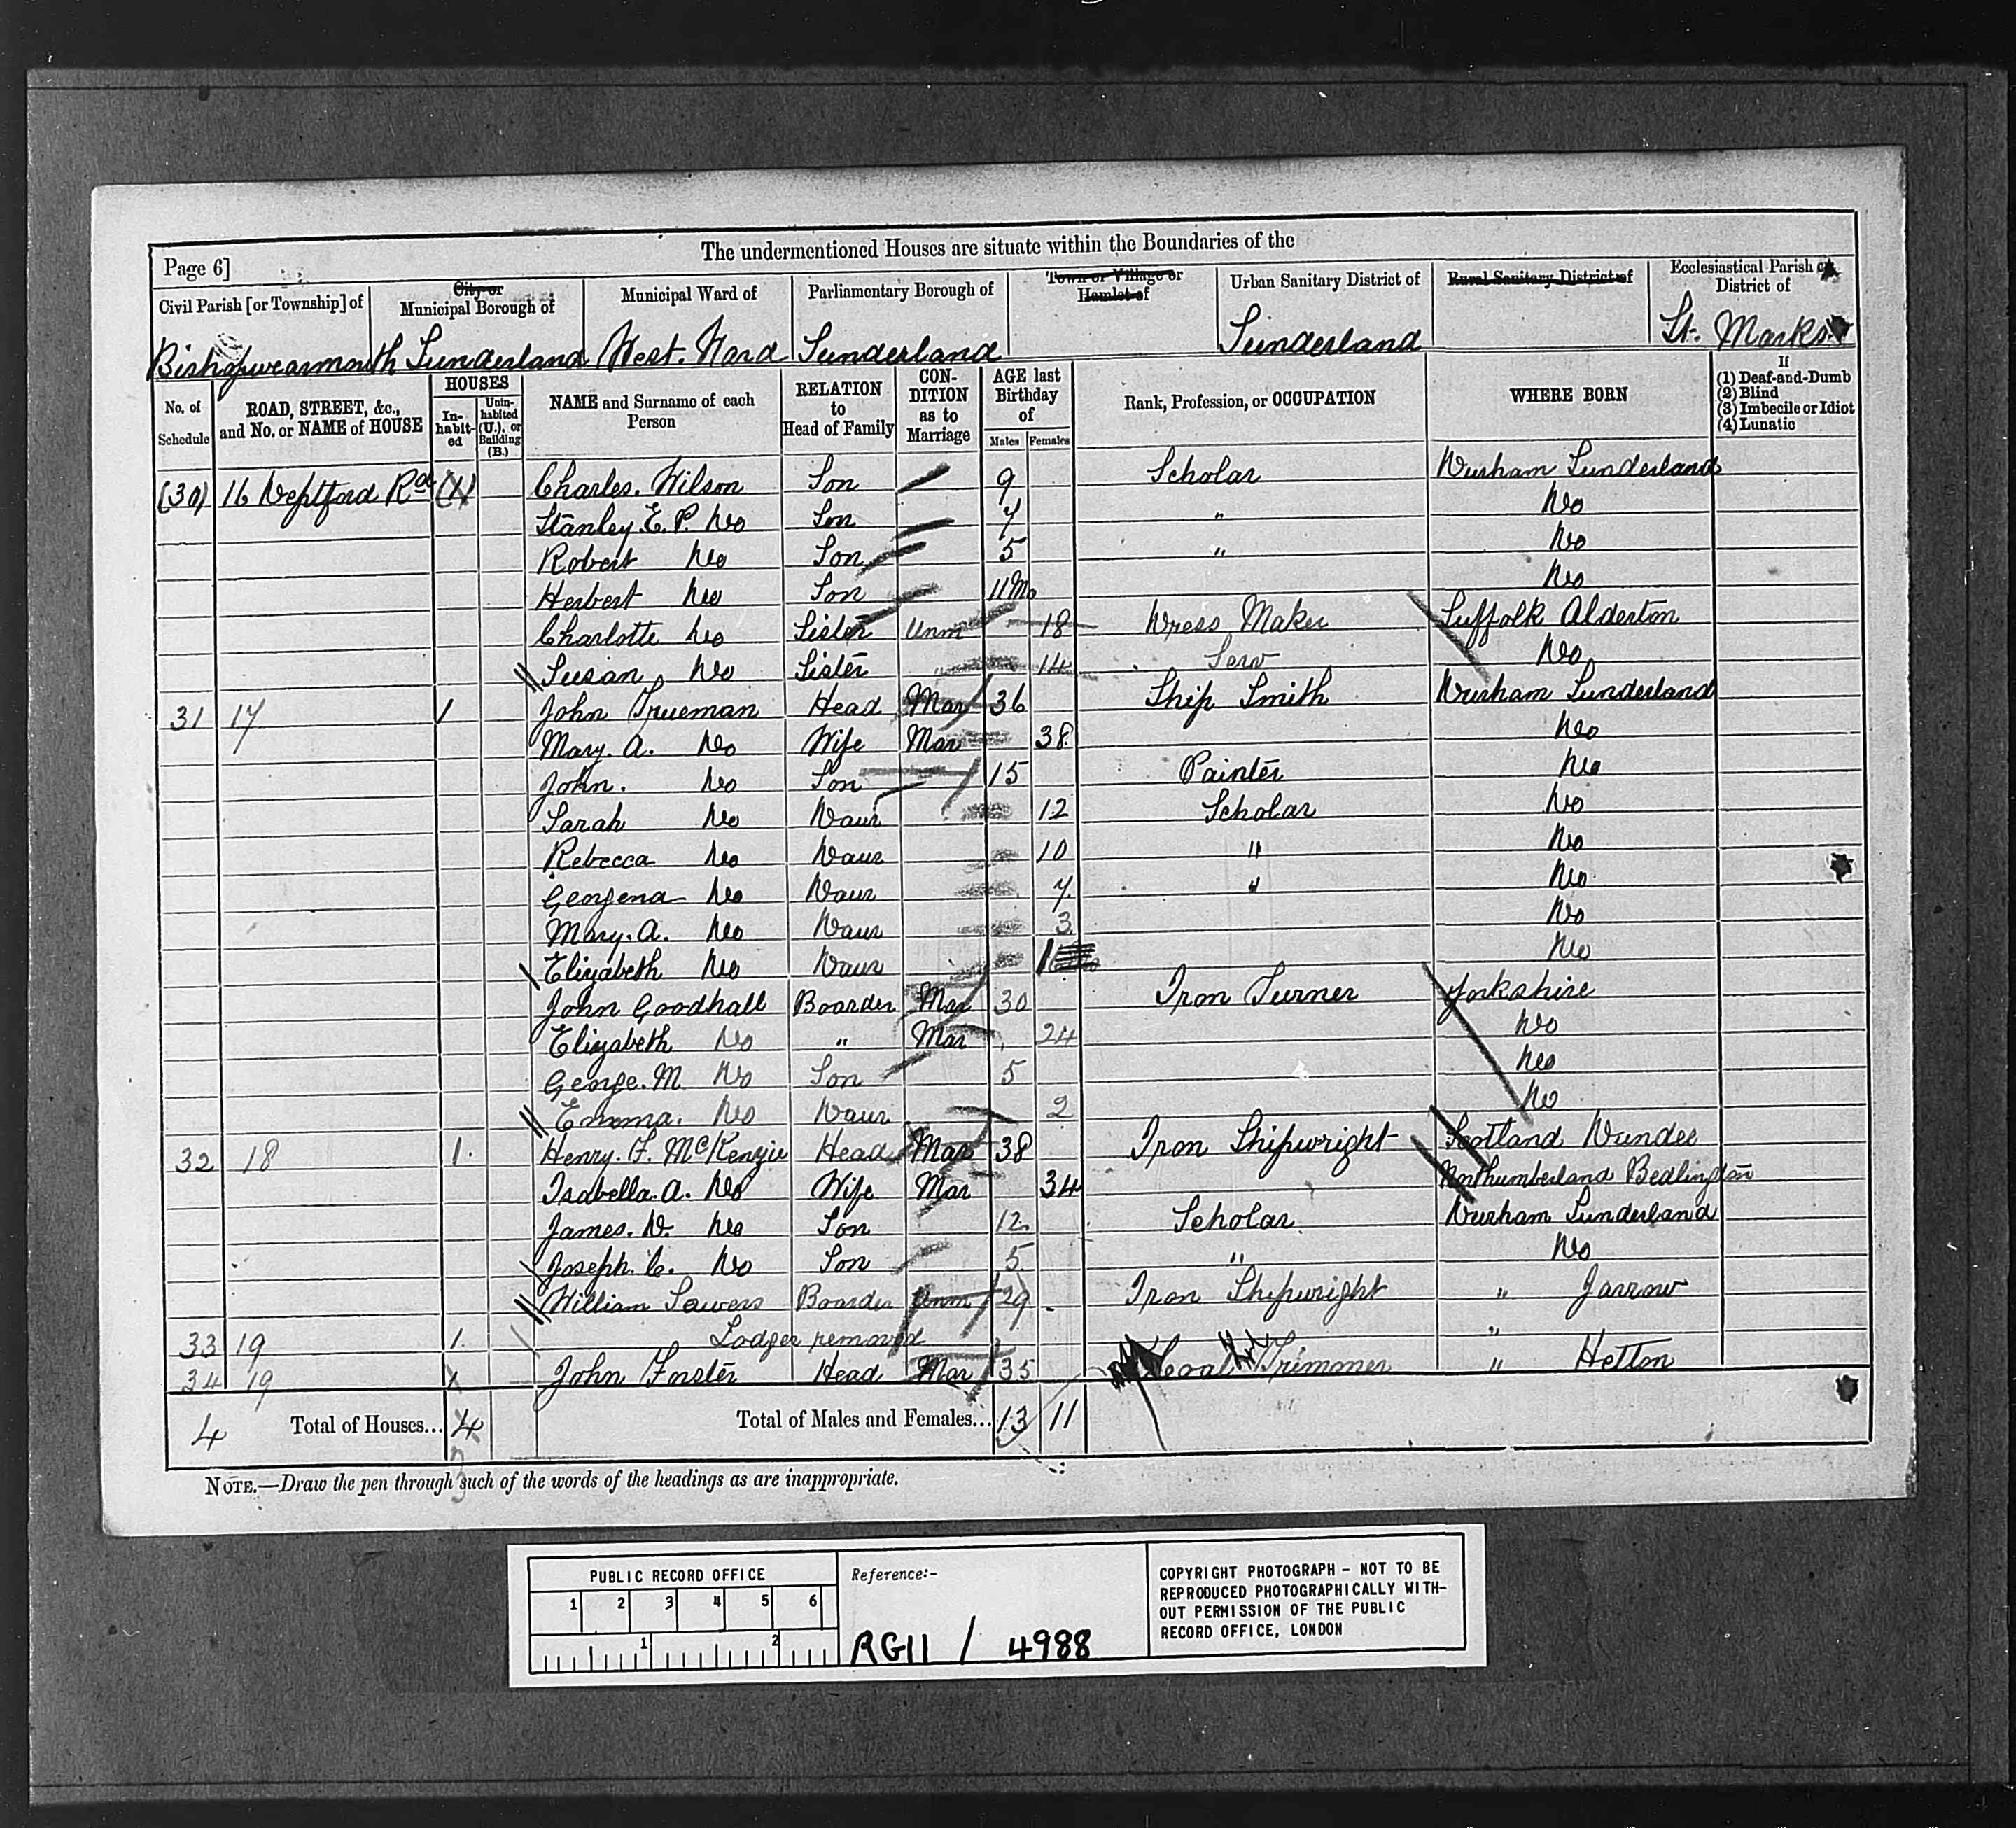 The undermentioned Houses are situate within the Boundaries of the
Page 6]
Civil Parish [or Township] of
City or Municipal Borough of
Municipal Ward of
Parliamentary Borough of
Town or Village or Hamlet of
Urban Sanitary District of
Rural Sanitary District of
Ecclesiastical Parish or District of
Bishopwearmouth Sunderland West. Ward Sunderland Sunderland St. Marks
No. of Schedule
ROAD, STREET, &c., and No. or NAME of HOUSE
HOUSES
In-habit-ed
Unin-habited (U.), or Building (B.)
NAME and Surname of each Person
RELATION to Head of Family
CON-DITION as to Marriage
AGE last Birthday of
Males Females
Rank, Profession, or OCCUPATION
WHERE BORN
If
(1) Deaf-and-Dumb
(2) Blind
(3) Imbecile or Idiot
(4) Lunatic
(30) 16 Deptford Rd Charles. Wilson Son 9 Scholar Durham Sunderland
Stanley. E. P. Do Son 7 " Do
Robert Do Son 5 " Do
Herbert Do Son 11 Mo Do
Charlotte Do Sister Unm 18 Dress Maker Suffolk Alderton
Susan Do Sister 14 Serv Do
31 17 1 John Trueman Head Mar 36 Ship Smith Durham Sunderland
Mary. A. Do Wife Mar 38 Do
John. Do Son 15 Painter Do
Sarah Do Daur 12 Scholar Do
Rebecca Do Daur 10 " Do
Georgena Do Daur 7 " Do
Mary. A. Do Daur 3 Do
Elizabeth Do Daur 1 Do
John Goodhall Boarder Mar 30 Iron Turner Yorkshire
Elizabeth Do " Mar 24 Do
George. M. Do Son 5 Do
Emma. Do Daur 2 Do
32 18 1. Henry. F. McKenzie Head Mar 38 Iron Shipwright Scotland Dundee
Isabella. A. Do Wife Mar 34 Northumberland Bedlington
James. D. Do Son 12 Scholar Durham Sunderland
Joseph. C. Do Son 5 " Do
William Sowers Boarder Unm 29 Iron Shipwright " Jarrow
33 19 1. Lodger removed "
34 19 John Forster Head Mar 35 Coal Trimmer " Hetton
4 Total of Houses... 4 Total of Males and Females... 13 11
NOTE.—Draw the pen through such of the words of the headings as are inappropriate.
PUBLIC RECORD OFFICE
1 2 3 4 5 6
1 2
Reference:-
RG11 / 4988
COPYRIGHT PHOTOGRAPH - NOT TO BE
REPRODUCED PHOTOGRAPHICALLY WITH-
OUT PERMISSION OF THE PUBLIC
RECORD OFFICE, LONDON